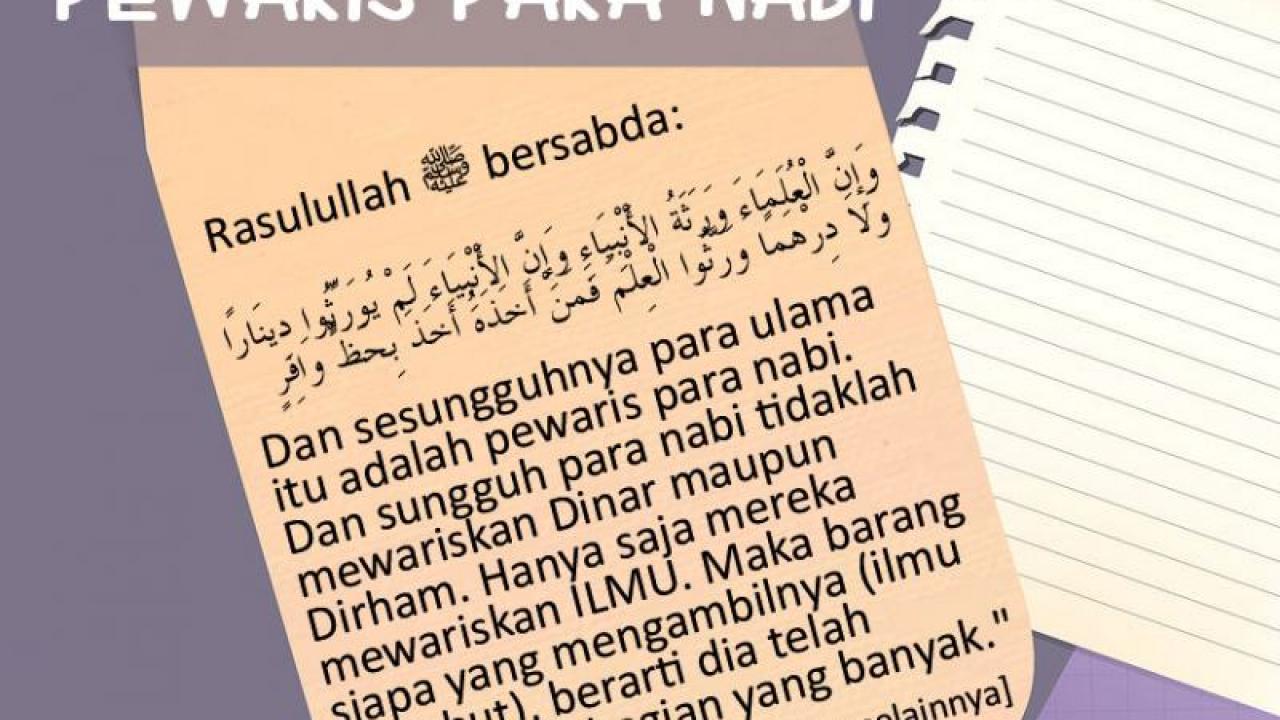 PEWARIS PARA NABI
Rasulullah ﷺ bersabda:
وَإِنَّ الْعُلَمَاءَ وَرَثَةُ الأَنْبِيَاءِ وَإِنَّ الأَنْبِيَاءَ لَمْ يُوَرِّثُوا دِينَارًا
وَلاَ دِرْهَمًا وَرَّثُوا الْعِلْمَ فَمَنْ أَخَذَهُ أَخَذَ بِحَظٍّ وَافِرٍ
Dan sesungguhnya para ulama
itu adalah pewaris para nabi.
Dan sungguh para nabi tidaklah
mewariskan Dinar maupun
Dirham. Hanya saja mereka
mewariskan ILMU. Maka barang
siapa yang mengambilnya (ilmu
berarti dia telah
yang banyak."